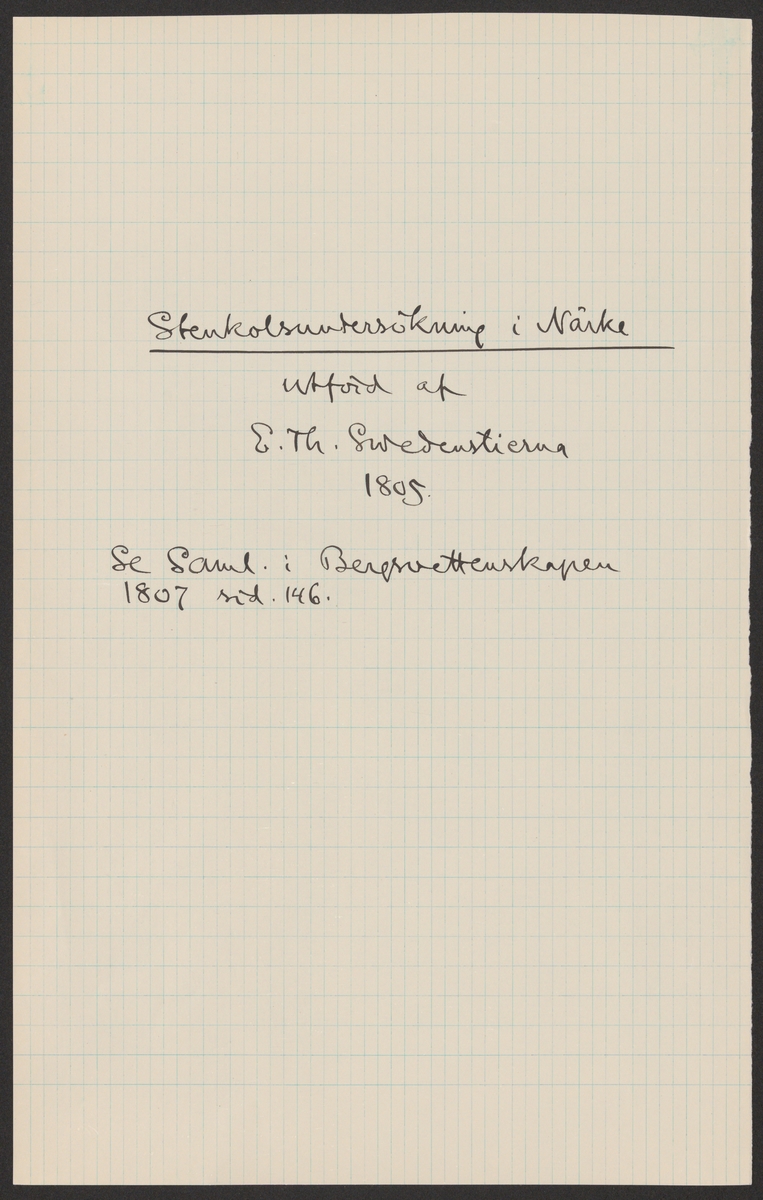 Stenkolsundersökning i Närke
utförd af
E. Th. Swedenstierna
1805.
Se Saml. i Bergsvettenskapen
1807 sid. 146.